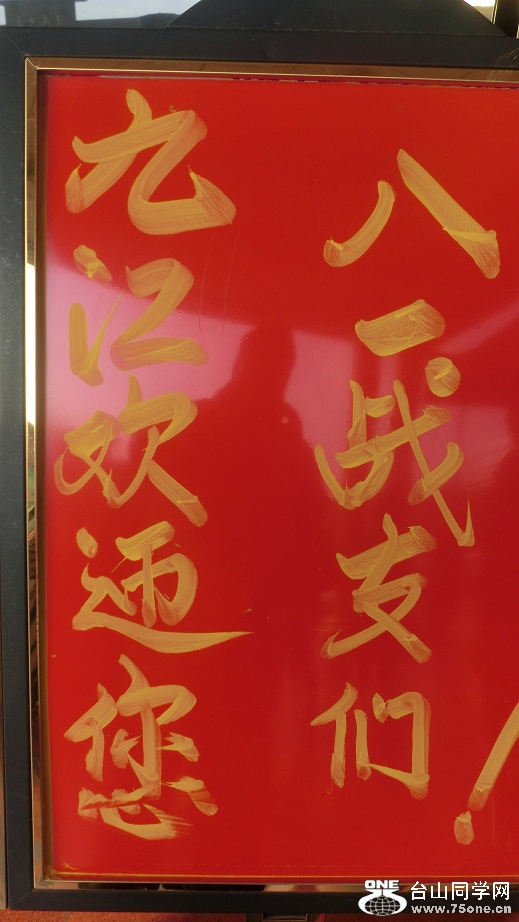 八一战友们
九江欢迎您
！
ONE
台山同学网
www.75one.cn